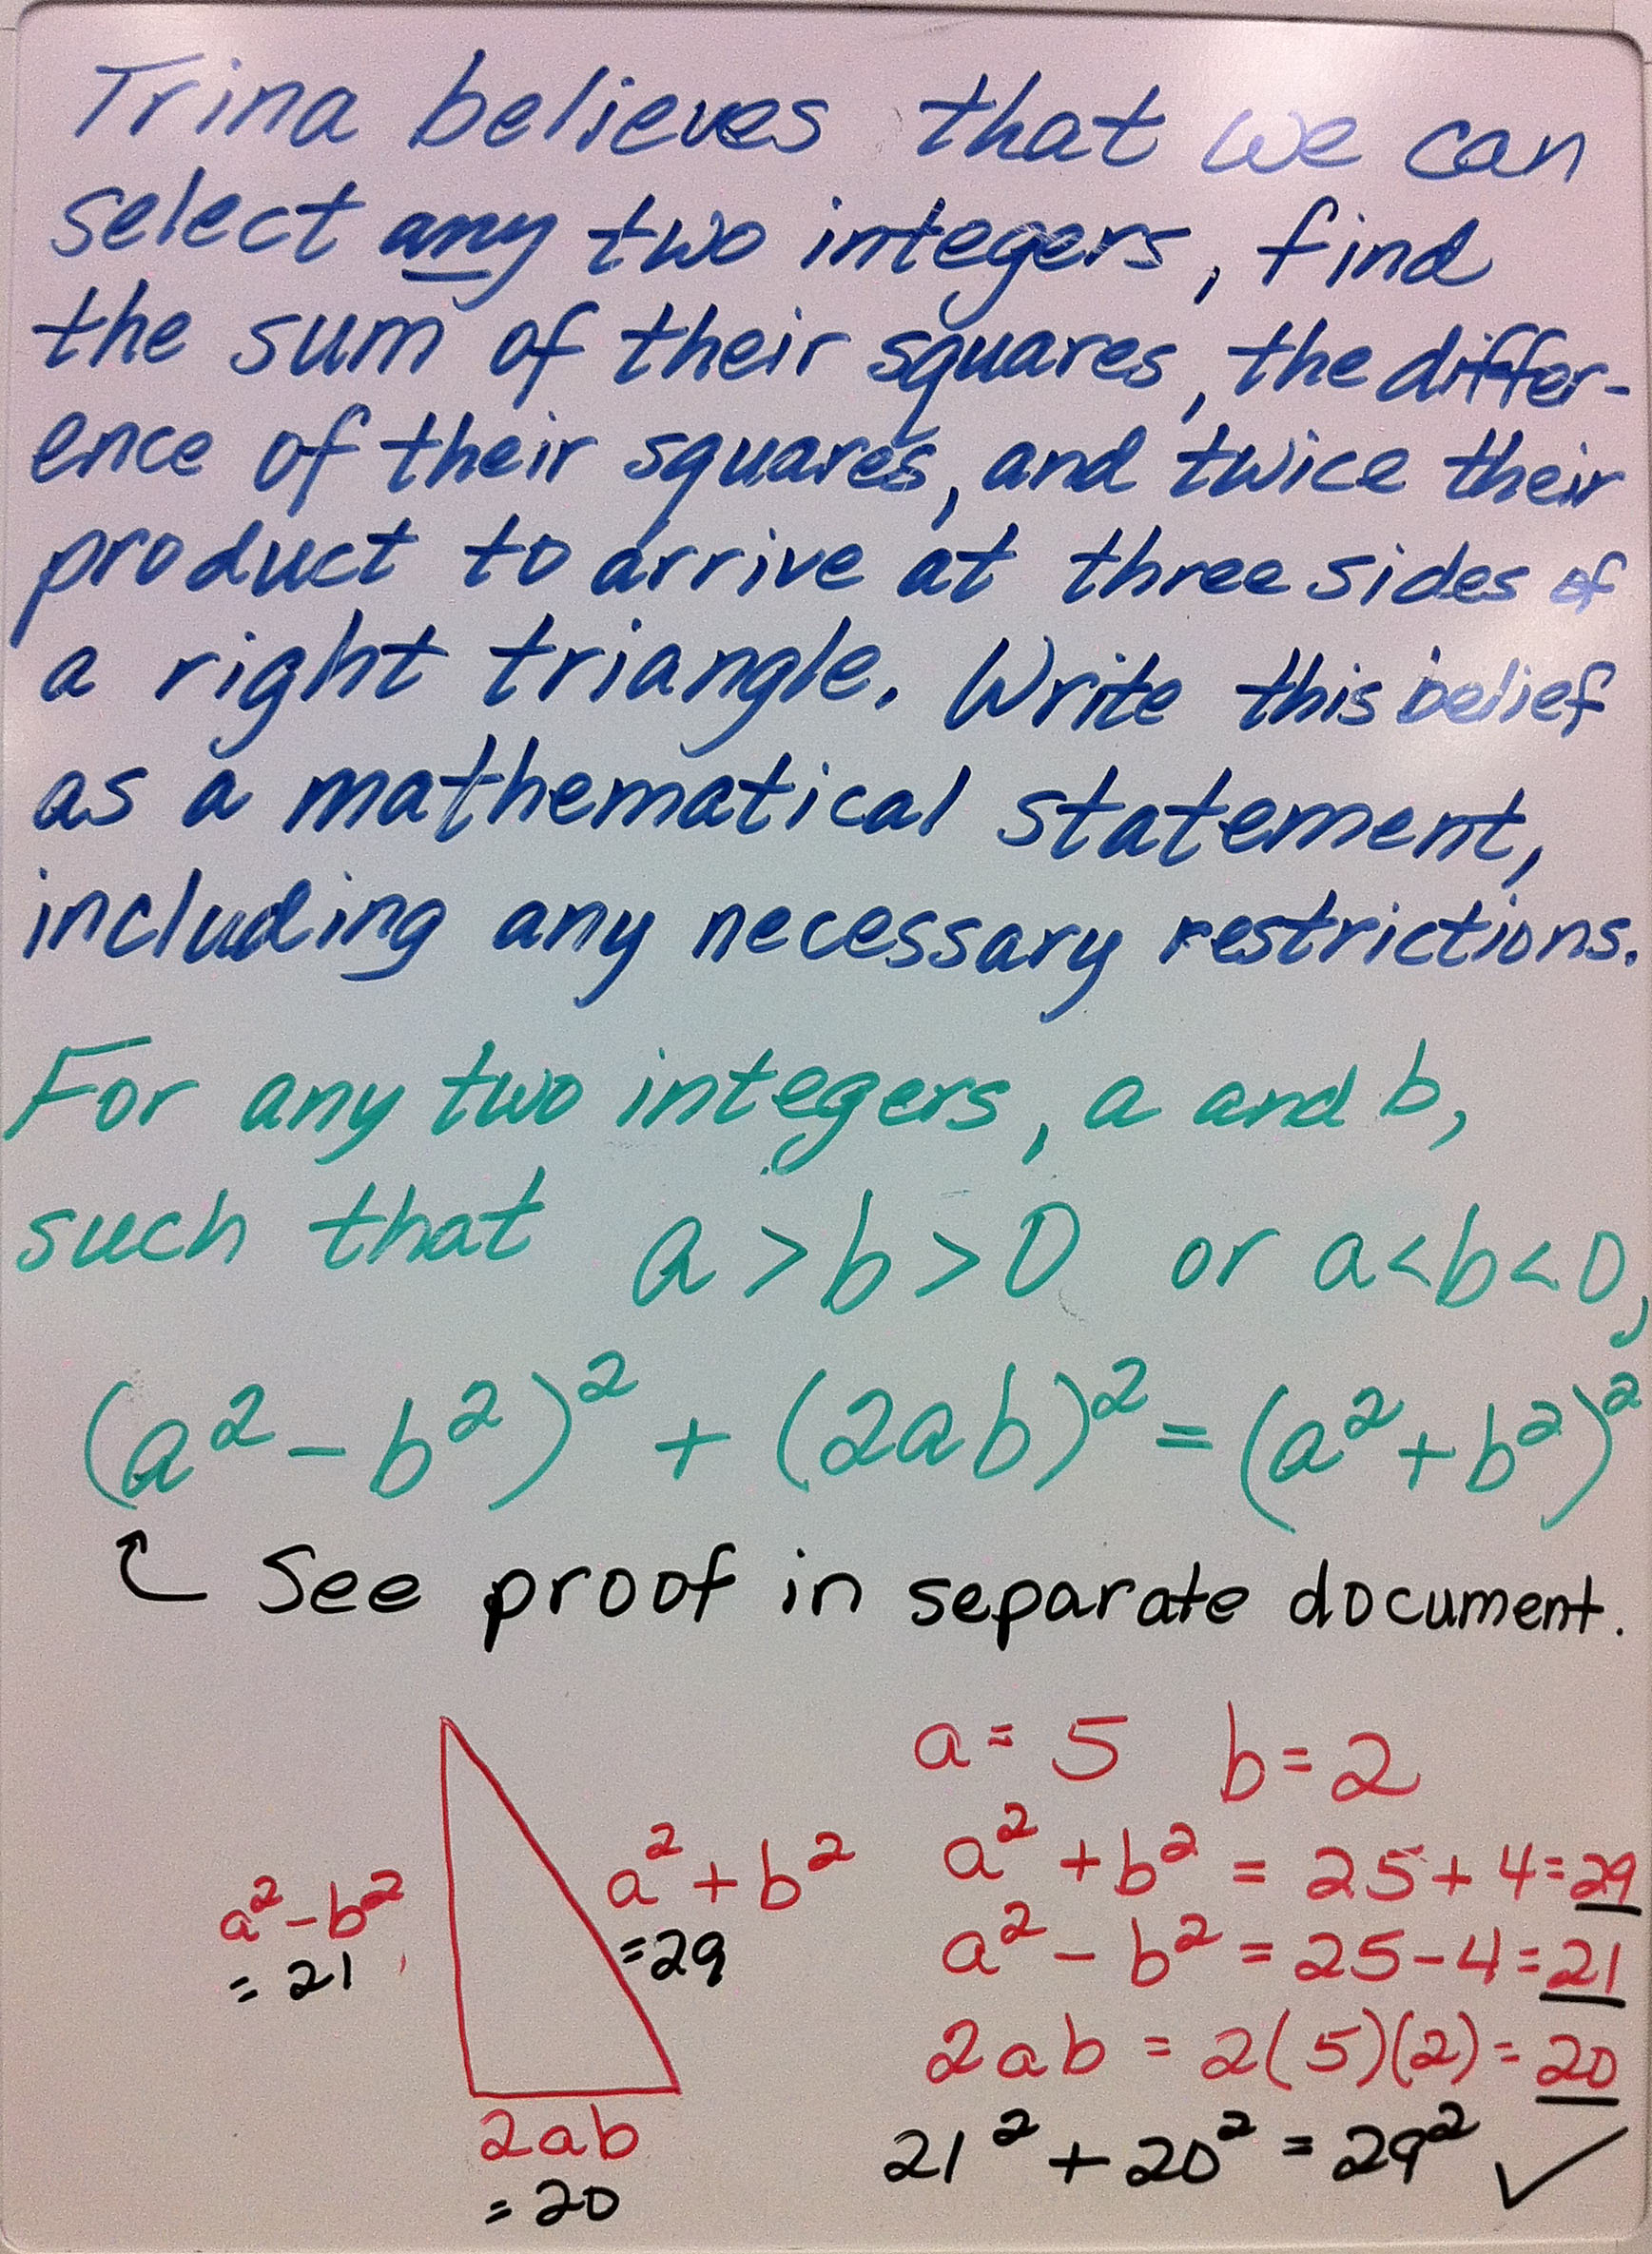 Trina believes that we can
select any two integers, find
the sum of their squares, the differ-
ence of their squares, and twice their
product to arrive at three sides of
a right triangle. Write this belief
as a mathematical statement,
including any necessary restrictions.
For any two integers, a and b,
such that a > b > 0 or a < b < 0,
(a² - b²)² + (2ab)² = (a² + b²)²
See proof in separate document.
a² - b²
= 21
a² + b²
= 29
2ab
= 20
a = 5 b = 2
a² + b² = 25 + 4 = 29
a² - b² = 25 - 4 = 21
2ab = 2(5)(2) = 20
21² + 20² = 29² ✓